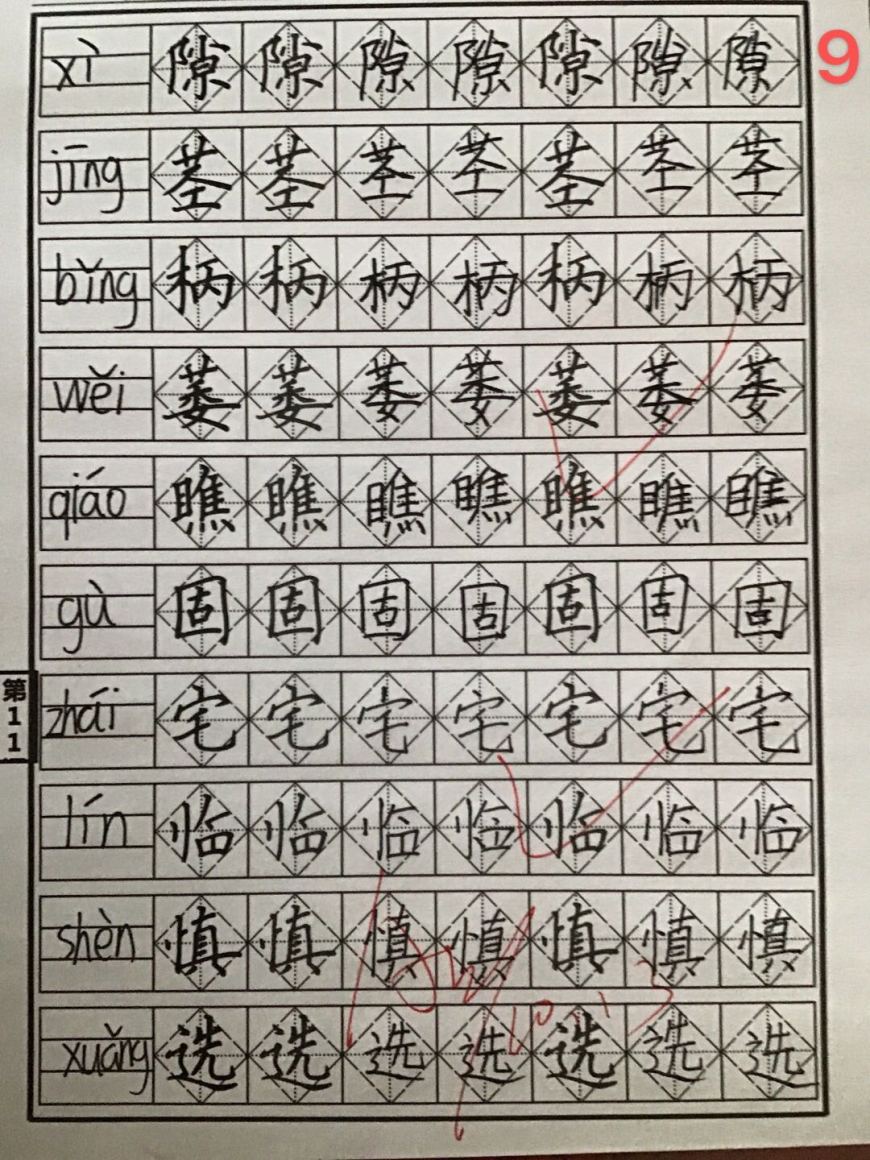 xì 隙 隙 隙 隙 隙 隙 隙
9
jīng 茎 茎 茎 茎 茎 茎 茎
bǐng 柄 柄 柄 柄 柄 柄 柄
wěi 萎 萎 萎 萎 萎 萎 萎
qiáo 瞧 瞧 瞧 瞧 瞧 瞧 瞧
gù 固 固 固 固 固 固 固
zhái 宅 宅 宅 宅 宅 宅 宅
第11
lín 临 临 临 临 临 临 临
shèn 慎 慎 慎 慎 慎 慎 慎
xuǎng 选 选 选 选 选 选 选